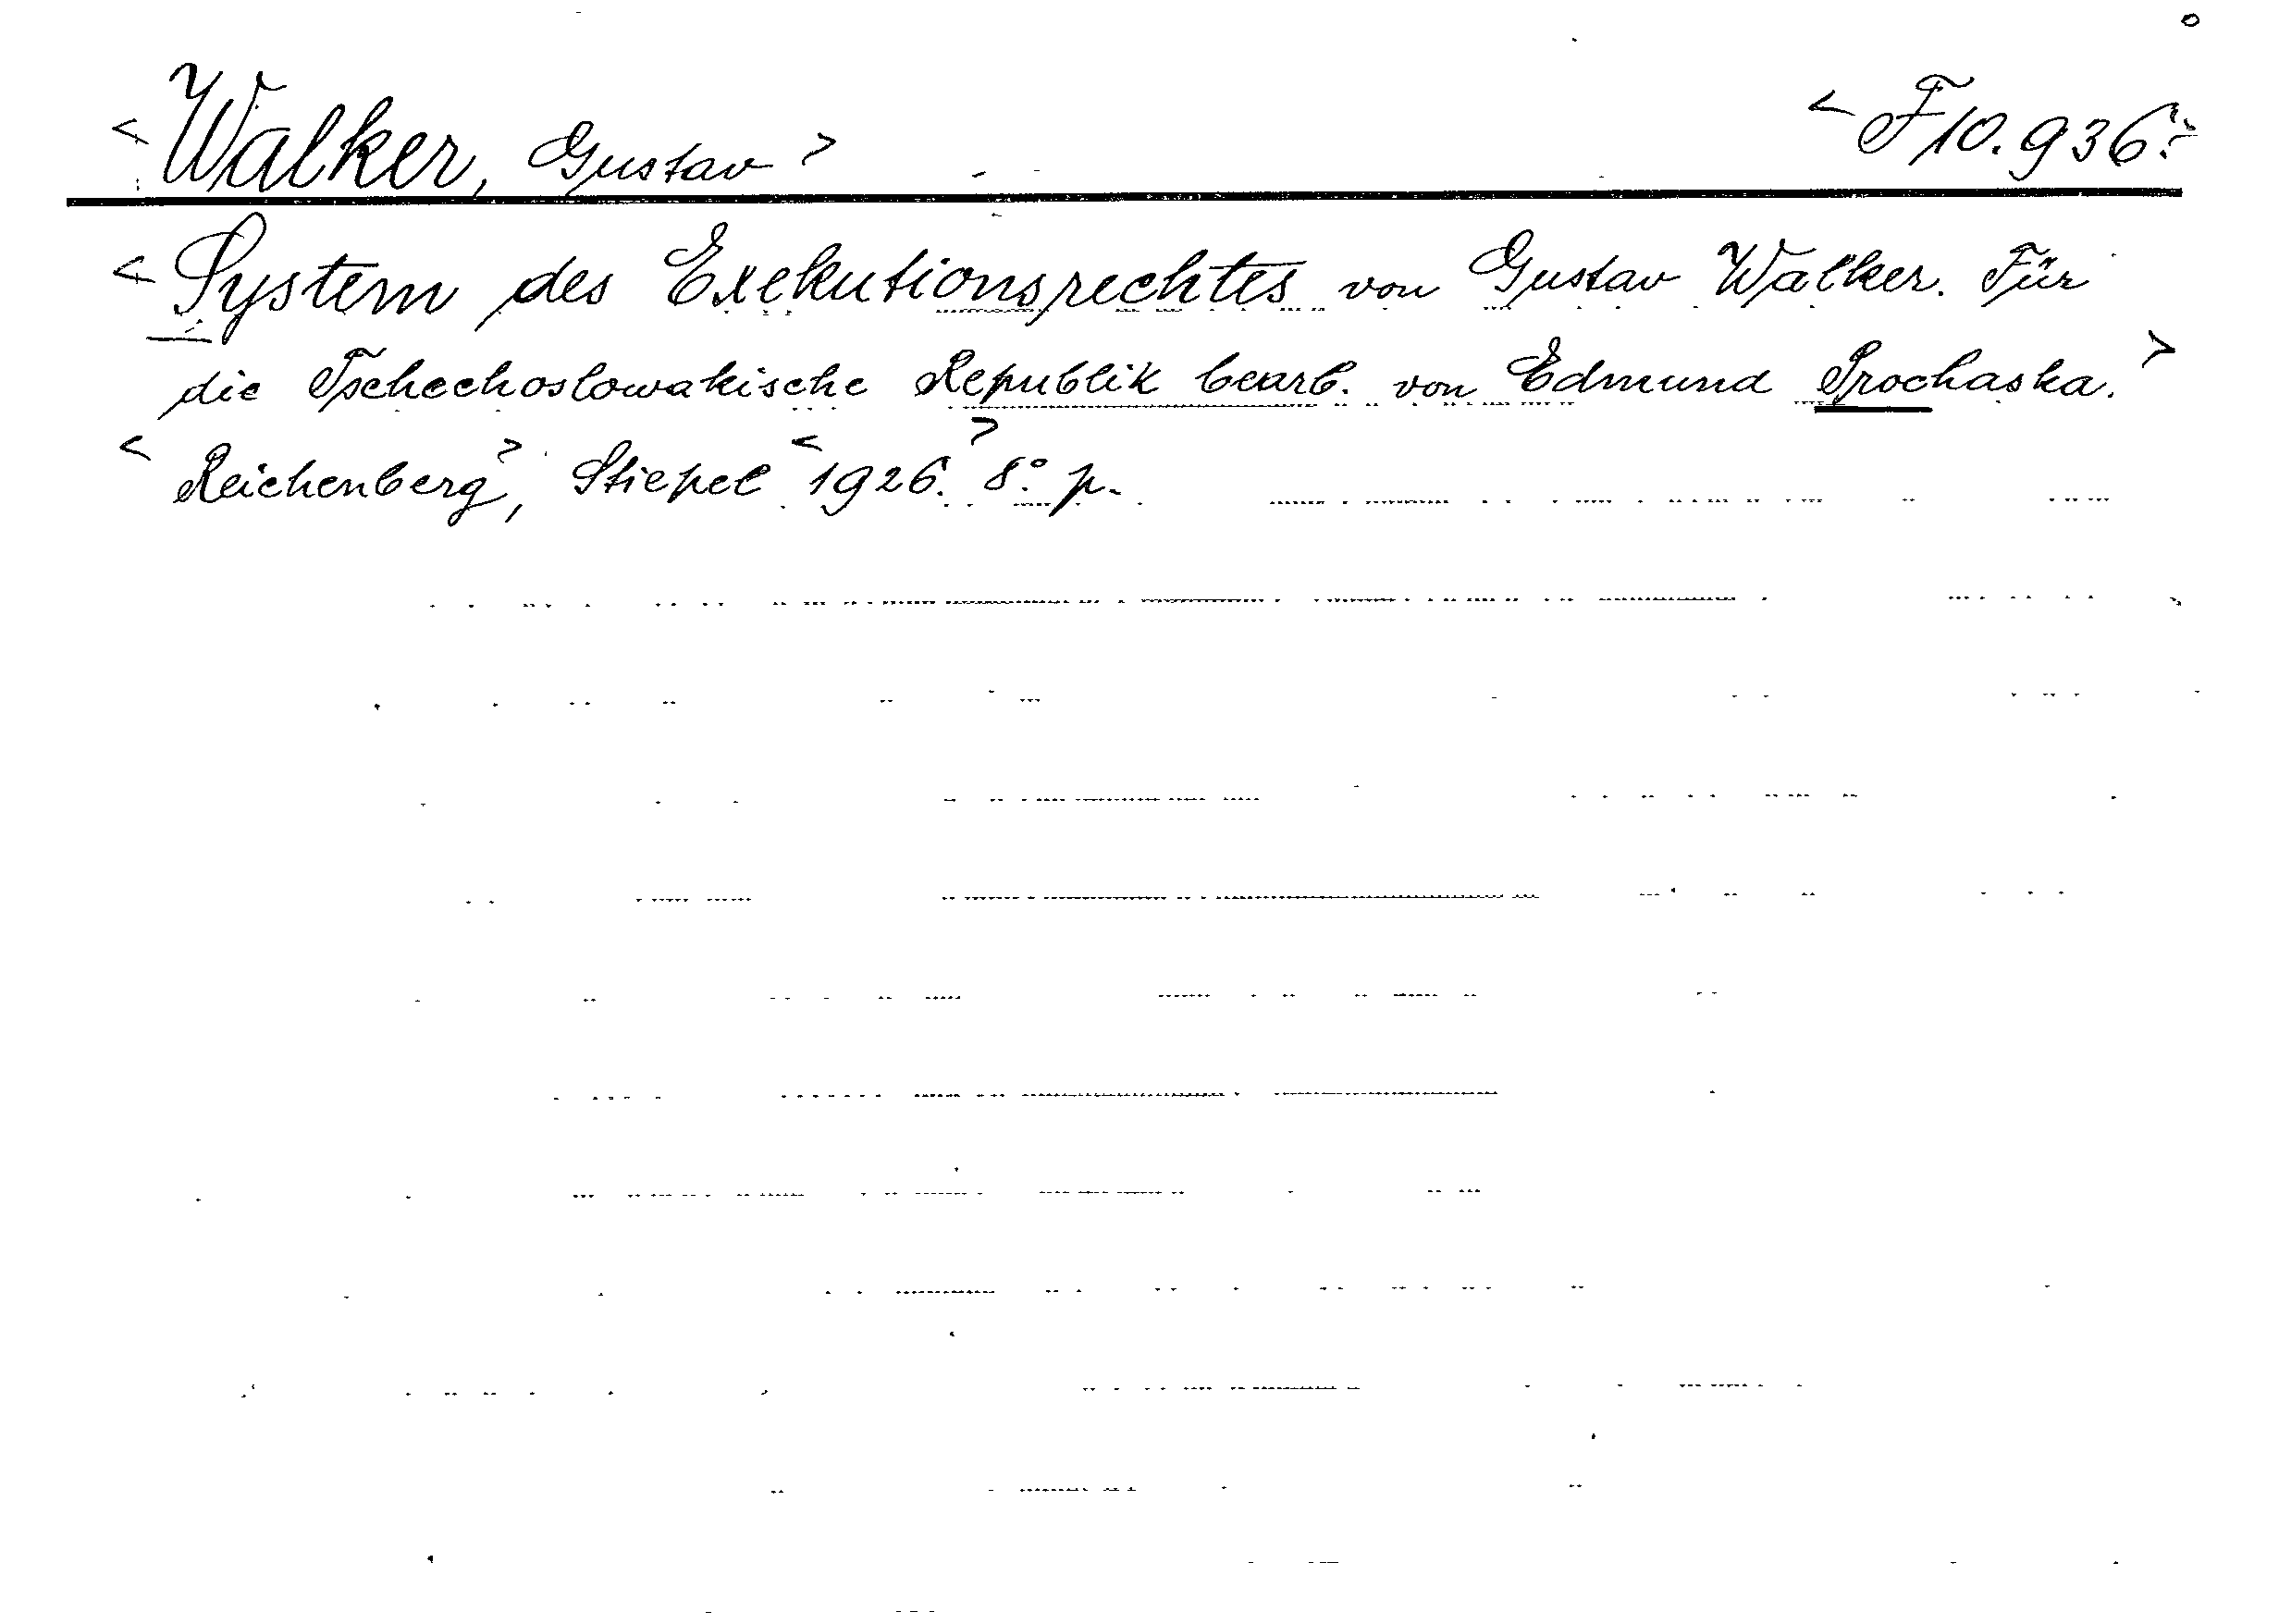 < Walker, Gustav > < F 10.936. >
< System des Exekutionsrechtes von Gustav Walker. Für
die Tschechoslowakische Republik bearb. von Edmund Prochaska. >
< Reichenberg >, Stiepel < 1926. > 8° p.